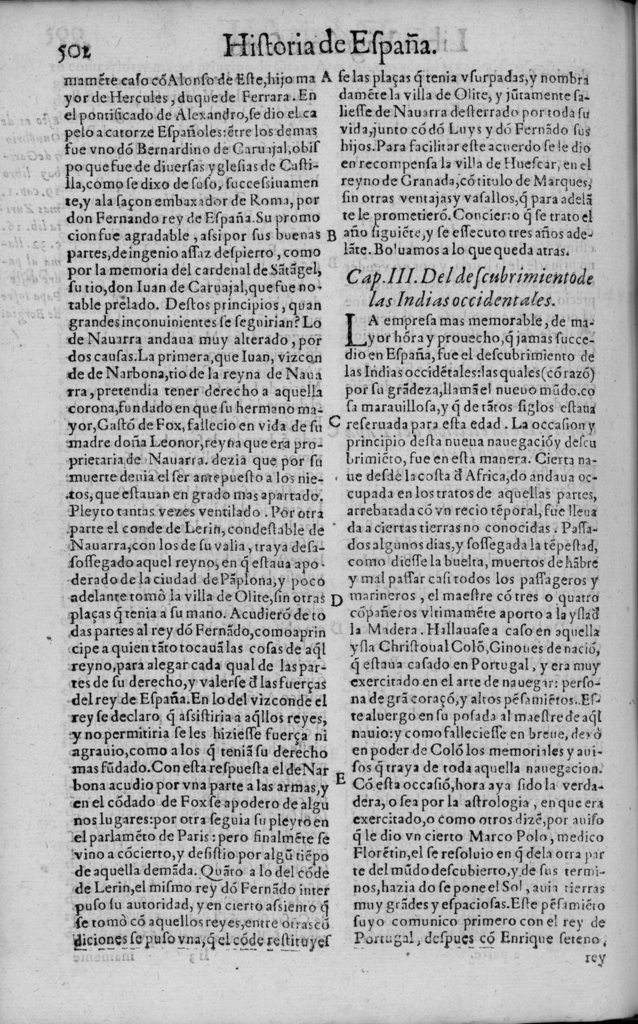 502
Historia de España.
mamēte caso cō Alonso de Este, hijo ma
yor de Hercules, duque de Ferrara. En
el pontificado de Alexandro, se dio el ca
pelo a catorze Españoles: ētre los demas
fue vno dō Bernardino de Caruajal, obis
po que fue de diuersas yglesias de Casti-
lla, como se dixo de suso, successiuamen
te, y ala saçon embaxador de Roma, por
don Fernando rey de España. Su promo
cion fue agradable, assi por sus buenas
partes, de ingenio assaz despierto, como
por la memoria del cardenal de Sātāgel,
su tio, don Iuan de Caruajal, que fue no-
table prelado. Destos principios, quan
grandes inconuinientes se seguirian? Lo
de Nauarra andaua muy alterado, por
dos causas. La primera, que Iuan, vizcon
de de Narbona, tio de la reyna de Naua
rra, pretendia tener derecho a aquella
corona, fundado en que su hermano ma-
yor, Gastō de Fox, fallecio en vida de su
madre doña Leonor, reyna que era pro-
prietaria de Nauarra. dezia que por su
muerte deuia el ser antepuesto a los nie-
tos, que estauan en grado mas apartado.
Pleyto tantas vezes ventilado. Por otra
parte el conde de Lerin, condestable de
Nauarra, con los de su valia, traya desa-
sossegado aquel reyno, en q̄ estaua apo-
derado de la ciudad de Pāplona, y poco
adelante tomò la villa de Olite, sin otras
plaças q̄ tenia a su mano. Acudierō de to
das partes al rey dō Fernādo, como a prin
cipe a quien tāto tocauā las cosas de aq̄l
reyno, para alegar cada qual de las par-
tes de su derecho, y valerse d̄ las fuerças
del rey de España. En lo del vizconde el
rey se declaro q̄ assistiria a aq̄llos reyes,
y no permitiria se les hiziesse fuerça ni
agrauio, como a los q̄ teniā su derecho
mas fūdado. Con esta respuesta el de Nar
bona acudio por vna parte a las armas, y
en el cōdado de Fox se apodero de algu
nos lugares: por otra seguia su pleyto en
el parlamēto de Paris: pero finalmēte se
vino a cōcierto, y desistio por algū tiēpo
de aquella demāda. Quāto a lo del cōde
de Lerin, el mismo rey dō Fernādo inter
puso su autoridad, y en cierto assiento q̄
se tomò cō aquellos reyes, entre otras cō
diciones se puso vna, q̄ el cōde restituyes
A
B
C
D
E
se las plaças q̄ tenia vsurpadas, y nombra
damēte la villa de Olite, y jūtamente sa-
liesse de Nauarra desterrado por toda su
vida, junto cō dō Luys y dō Fernādo sus
hijos. Para facilitar este acuerdo se le dio
en recompensa la villa de Huescar, en el
reyno de Granada, cō titulo de Marques,
sin otras ventajas y vasallos, q̄ para adelā
te le prometierō. Concierto q̄ se trato el
año siguiēte, y se effecuto tres años ade-
lāte. Boluamos a lo que queda atras.
Cap. III. Del descubrimiento de
las Indias occidentales.
LA empresa mas memorable, de ma-
yor hōra y prouecho, q̄ jamas succe-
dio en España, fue el descubrimiento de
las Indias occidētales: las quales (cō razō)
por su grādeza, llamā el nueuo mūdo. co
sa marauillosa, y q̄ de tātos siglos estaua
reseruada para esta edad. La occasion y
principio desta nueua nauegaciō y descu
brimiēto, fue en esta manera. Cierta na-
ue desde la costa d̄ Africa, do andaua oc-
cupada en los tratos de aquellas partes,
arrebatada cō vn recio tēporal, fue lleua
da a ciertas tierras no conocidas. Passa-
dos algunos dias, y sossegada la tēpestad,
como diesse la buelta, muertos de hābre
y mal passar casi todos los passageros y
marineros, el maestre cō tres o quatro
cōpañeros vltimamēte aporto a la ysla d̄
la Madera. Hallauase a caso en aquella
ysla Christoual Colō, Ginoues de naciō,
q̄ estaua casado en Portugal, y era muy
exercitado en el arte de nauegar: perso-
na de grā coraçō, y altos pēsamiētos. Es-
te aluergo en su posada al maestre de aq̄l
nauio: y como falleciesse en breue, dexò
en poder de Colō los memoriales y aui-
sos q̄ traya de toda aquella nauegacion.
Cō esta occasiō, hora aya sido la verda-
dera, o sea por la astrologia, en que era
exercitado, o como otros dizē, por auiso
q̄ le dio vn cierto Marco Polo, medico
Florētin, el se resoluio en q̄ dela otra par
te del mūdo descubierto, y de sus termi-
nos, hazia do se pone el Sol, auia tierras
muy grādes y espaciosas. Este pēsamiēto
suyo comunico primero con el rey de
Portugal, despues cō Enrique seteno,
rey